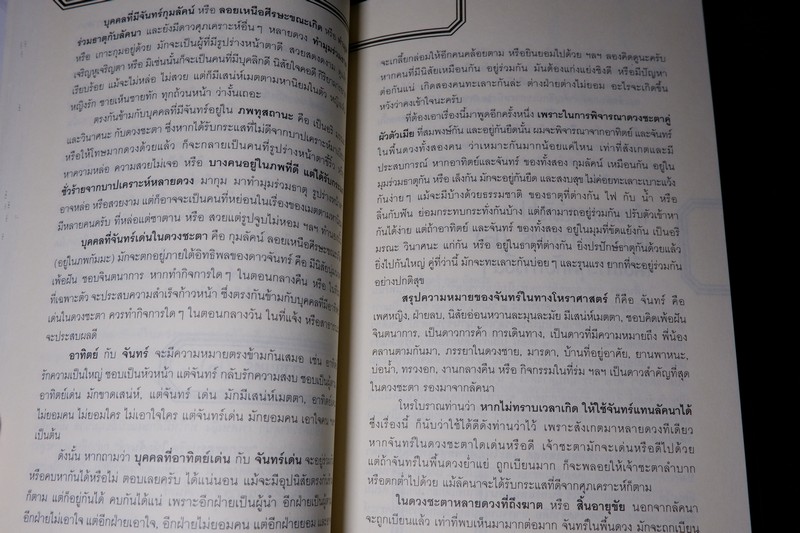 บุคคลที่มีจันทร์กุมลัคน์ หรือ ลอยเหนือศีรษะขณะเกิด หรือ
ร่วมธาตุกับลัคนา และยังมีดาวศุภเคราะห์อื่นๆ หลายดวง ทำมุมร่วม
หรือ เกาะกุมอยู่ด้วย มักจะเป็นผู้ที่มีรูปร่างหน้าตาดี สวยสดงดงาม
เจริญหูเจริญตา หรือ มิเช่นนั้นก็จะเป็นคนที่มีบุคลิกดี นิสัยใจคอดี
เรียบร้อย แม้จะไม่หล่อ ไม่สวย แต่ก็มีเสน่ห์เมตตามหานิยมในตัว
หญิงรัก ชายเห็นชายทัก ทุกถ้วนหน้า ว่างั้นเถอะ
ตรงกันข้ามกับบุคคลที่มีจันทร์อยู่ใน ภพทุสถานะ คือ เป็นอริ
และวินาศนะ กับดวงชะตา ซึ่งหากได้รับกระแสที่ไม่ดีจากบาปเคราะห์
หรือให้โทษมากดวงด้วยแล้ว ก็จะกลายเป็นคนที่มีรูปร่างหน้าตาขี้ริ้ว
หาความหล่อ ความสวยไม่เจอ หรือ บางคนอยู่ในภพที่ดี แต่ได้รับกระแส
ชั่วร้ายจากบาปเคราะห์หลายดวง มากุม มาทำมุมร่วมธาตุ รูปร่าง
อาจหล่อ หรือสวยงาม แต่ก็อาจจะเป็นคนที่หย่อนในเรื่องของเมตตามหานิยม
มีหลายคนครับ ที่หล่อแต่ซาตาน หรือ สวยแต่รูปจูบไม่หอม ฯลฯ
บุคคลที่จันทร์เด่นในดวงชะตา คือ กุมลัคน์ ลอยเหนือศีรษะขณะ
(อยู่ในภพกัมมะ) มักจะตกอยู่ภายใต้อิทธิพลของดาวจันทร์ คือ มีนิสัย
เพ้อฝัน ชอบจินตนาการ หากทำกิจการใดๆ ในตอนกลางคืน หรือ
ที่เฉพาะตัว จะประสบความสำเร็จก้าวหน้า ซึ่งตรงกันข้ามกับบุคคลที่มีอาทิตย์
เด่นในดวงชะตา ควรทำกิจการใดๆ ในตอนกลางวัน ในที่แจ้ง หรือ
จะประสบผลดี
อาทิตย์ กับ จันทร์ จะมีความหมายตรงข้ามกันเสมอ เช่น
รักความเป็นใหญ่ ชอบเป็นหัวหน้า แต่จันทร์ กลับรักความสงบ ชอบเป็นผู้
อาทิตย์เด่น มักขาดเสน่ห์, แต่จันทร์ เด่น มักมีเสน่ห์เมตตา,
ไม่ยอมคน ไม่ยอมใคร ไม่เอาใจใคร แต่จันทร์เด่น มักยอมคน เอาใจคน
เป็นต้น
ดังนั้น หากถามว่า บุคคลที่อาทิตย์เด่น กับ จันทร์เด่น จะอยู่
หรือคบหากันได้หรือไม่ ตอบเลยครับ ได้แน่นอน แม้จะมีอุปนิสัยตรง
ก็ตาม แต่ก็อยู่กันได้ คบกันได้ เพราะอีกฝ่ายเป็นผู้นำ อีกฝ่ายเป็นผู้
อีกฝ่ายไม่เอาใจ แต่อีกฝ่ายเอาใจ, อีกฝ่ายไม่ยอมคน แต่อีกฝ่ายยอม
จะเกลี้ยกล่อมให้อีกคนคล้อยตาม หรือยินยอมไปด้วย ฯลฯ ลองคิดดูนะครับ
หากคนที่มีนิสัยเหมือนกัน อยู่ร่วมกัน มันต้องแก่งแย่งชิงดี หรือมีปัญหา
ต่อกันแน่ เกิดสองคนทะเลาะกันล่ะ ต่างฝ่ายต่างไม่ยอม อะไรจะเกิดขึ้น
หวังว่าคงเข้าใจนะครับ
ที่ต้องเอาเรื่องนี้มาพูดอีกครั้งหนึ่ง เพราะในการพิจารณาดวงชะตาคู่
ผัวตัวเมีย ที่สมพงษ์กัน และอยู่กันยืดนั้น ผมจะพิจารณาจากอาทิตย์ และจันทร์
ในพื้นดวงทั้งสองคน ว่าเหมาะกันมากน้อยแค่ไหน เท่าที่สังเกตและมี
ประสบการณ์ หากอาทิตย์และจันทร์ ของทั้งสอง กุมลัคน์ เหมือนกัน อยู่ใน
มุมร่วมธาตุกัน หรือ เล็งกัน มักจะอยู่กันยืด และสงบสุข ไม่ค่อยทะเลาะเบาะแว้ง
กันง่ายๆ แม้จะมีบ้างด้วยธรรมชาติ ของธาตุที่ต่างกัน ไฟ กับ น้ำ หรือ
ลิ้นกับฟัน ย่อมกระทบกระทั่งกันบ้าง แต่ก็สามารถอยู่ร่วมกัน ปรับตัวเข้าหา
กันได้ง่าย แต่ถ้าอาทิตย์ และจันทร์ ของทั้งสอง อยู่ในมุมที่ขัดแย้งกัน เป็นอริ
มรณะ วินาศนะ แก่กัน หรือ อยู่ในธาตุที่ต่างกัน ยิ่งปรปักษ์ธาตุกันด้วยแล้ว
ยิ่งไปกันใหญ่ คู่ที่ว่านี้ มักจะทะเลาะกันบ่อยๆ และรุนแรง ยากที่จะอยู่ร่วมกัน
อย่างปกติสุข
สรุปความหมายของจันทร์ในทางโหราศาสตร์ ก็คือ จันทร์ คือ
เพศหญิง, ฝ่ายลบ, นิสัยอ่อนหวานละมุนละมัย มีเสน่ห์เมตตา, ชอบคิดเพ้อฝัน
จินตนาการ, เป็นดาวการค้า การเดินทาง, เป็นดาวที่มีความหมายถึง พี่น้อง
คลานตามกันมา, ภรรยาในดวงชาย, มารดา, บ้านที่อยู่อาศัย, ยานพาหนะ,
บ่อน้ำ, ทรวงอก, งานกลางคืน หรือ กิจกรรมในที่ร่ม ฯลฯ เป็นดาวสำคัญที่สุด
ในดวงชะตา รองมาจากลัคนา
โหรโบราณท่านว่า หากไม่ทราบเวลาเกิด ให้ใช้จันทร์แทนลัคนาได้
ซึ่งเรื่องนี้ ก็นับว่าใช้ได้ดีดังท่านว่าไว้ เพราะสังเกตมาหลายดวงทีเดียว
หากจันทร์ในดวงชะตาใดเด่นหรือดี เจ้าชะตามักจะเด่นหรือดีไปด้วย
แต่ถ้าจันทร์ในพื้นดวงย่ำแย่ ถูกเบียนมาก ก็จะพลอยให้เจ้าชะตาลำบาก
หรือตกต่ำไปด้วย แม้ลัคนาจะได้รับกระแสที่ดีจากศุภเคราะห์ก็ตาม
ในดวงชะตาหลายดวงที่ถึงฆาต หรือ สิ้นอายุขัย นอกจากลัคนา
จะถูกเบียนแล้ว เท่าที่พบเห็นมามากต่อมาก จันทร์ในพื้นดวง มักจะถูกเบียน